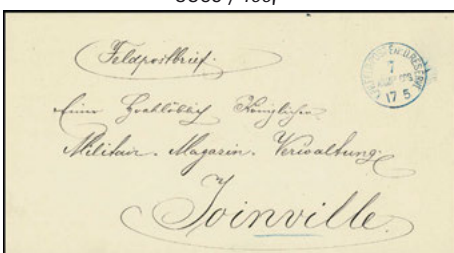 Feldpostbrief.
7
17 5
Einer Hochlöblich Königlichen
Militair-Magazin-Verwaltung
Joinville